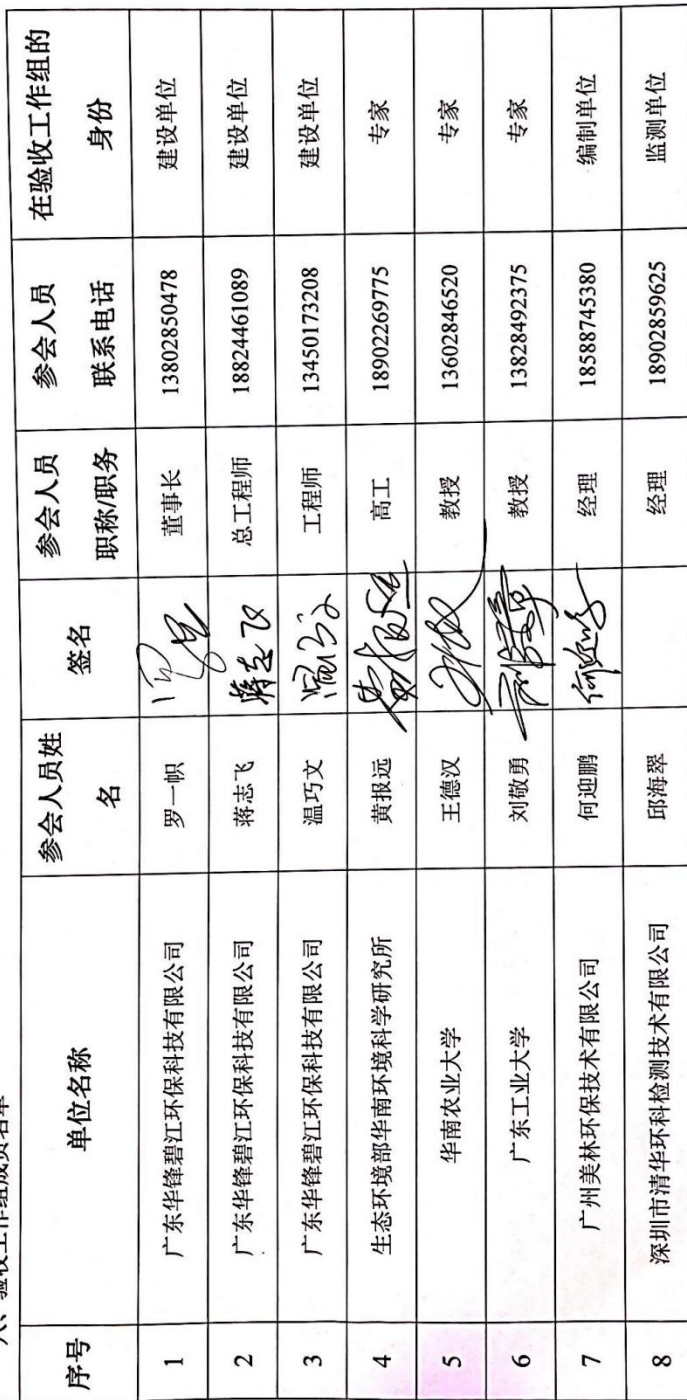 八、验收工作组成员名单
序号 单位名称 参会人员姓名 签名 参会人员职称/职务 参会人员联系电话 在验收工作组的身份
1 广东华锋碧江环保科技有限公司 罗一帜 董事长 13802850478 建设单位
2 广东华锋碧江环保科技有限公司 蒋志飞 蒋志飞 总工程师 18824461089 建设单位
3 广东华锋碧江环保科技有限公司 温巧文 温巧文 工程师 13450173208 建设单位
4 生态环境部华南环境科学研究所 黄报远 黄报远 高工 18902269775 专家
5 华南农业大学 王德汉 教授 13602846520 专家
6 广东工业大学 刘敬勇 刘敬勇 教授 13828492375 专家
7 广州美林环保技术有限公司 何迎鹏 何迎鹏 经理 18588745380 编制单位
8 深圳市清华环科检测技术有限公司 邱海翠 经理 18902859625 监测单位